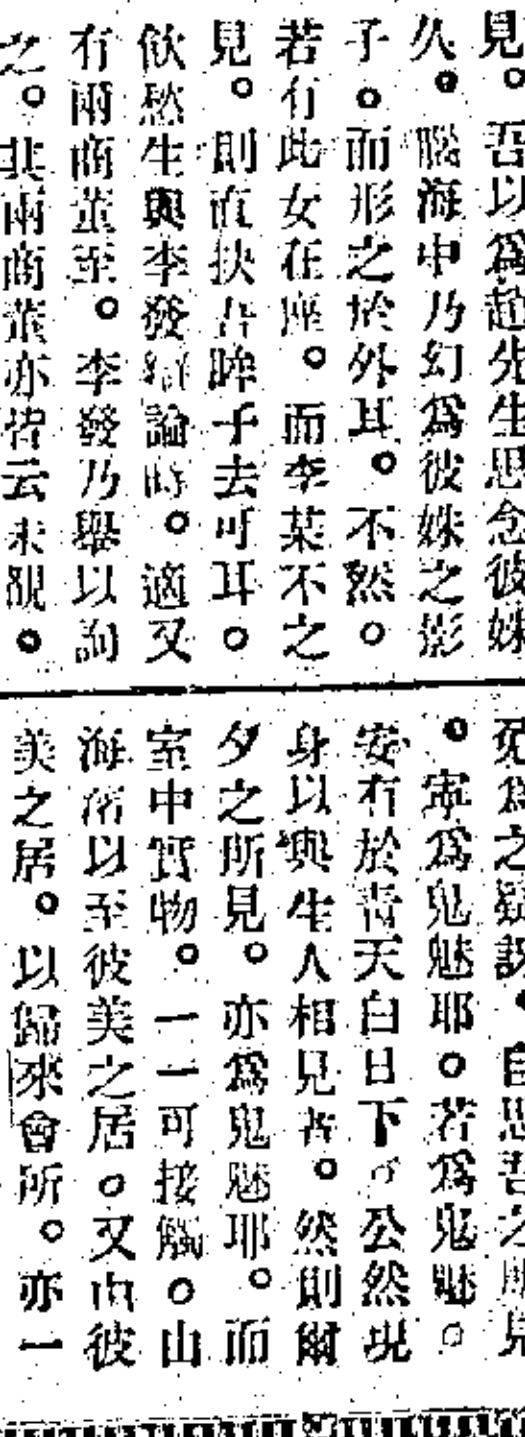 見。吾以爲趙先生思念彼姝
久。腦海中乃幻爲彼姝之影
子。而形之於外耳。不然。
若有此女在座。而李某不之
見。則直抉吾眸子去可耳。
欣愁生與李發辯論時。適又
有兩商董至。李發乃舉以詢
之。其兩商董亦皆云未覩。
爲之疑訝。自思吾之所見
。寧爲鬼魅耶。若爲鬼魅。
安有於靑天白日下。公然現
身以與生人相見者。然則爾
夕之所見。亦爲鬼魅耶。而
室中實物。一一可接觸。由
海所以至彼美之居。又由彼
美之居。以歸來會所。亦一